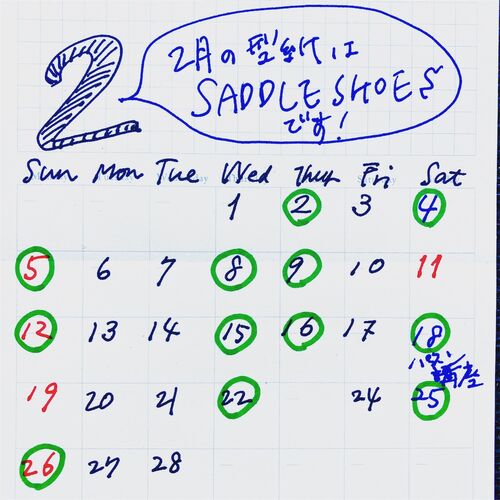 2
2月の型紙は
SADDLE SHOES
です!
Sun Mon Tue Wed Thur Fri Sat
1 2 3 4
5 6 7 8 9 10 11
12 13 14 15 16 17 18
講座
19 20 21 22 24 25
26 27 28